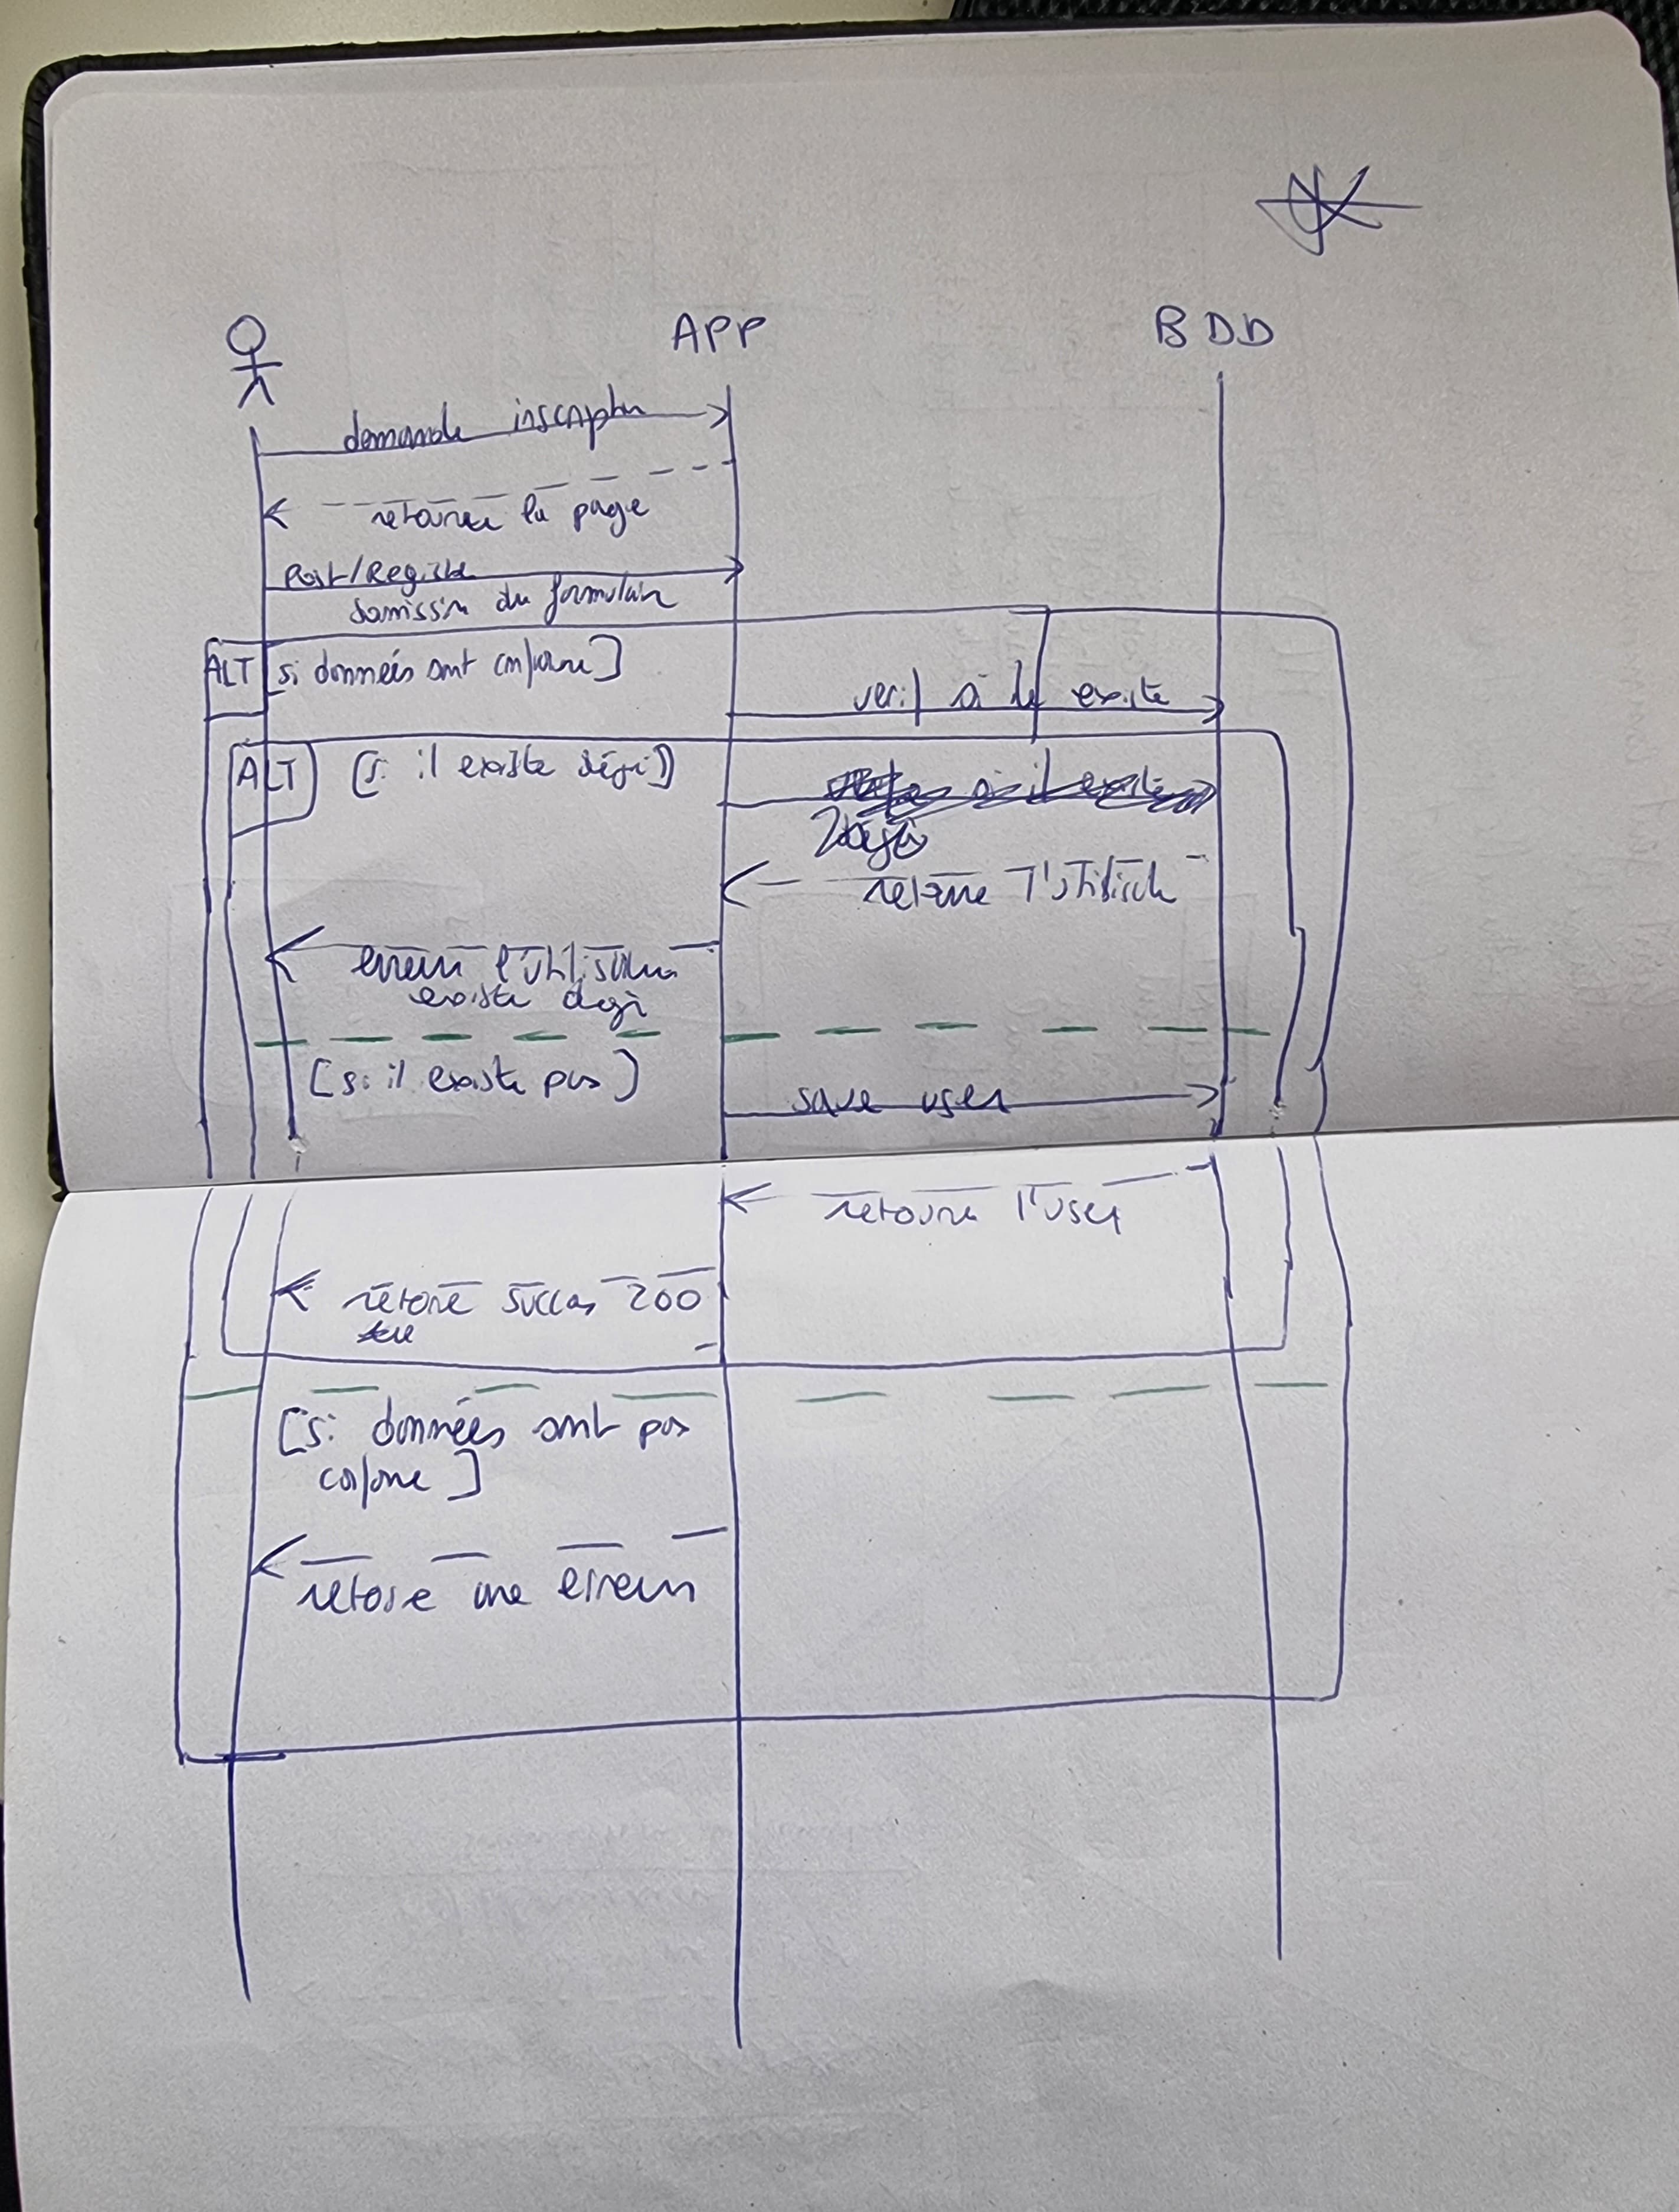 APP
BDD
demande inscription
retourne la page
Post/Register
du formulaire
ALT [si données sont conforme]
verif si il existe
ALT [si il existe déjà]
retourne l'utilisateur
erreur l'utilisateur
existe deja
[si il existe pas]
save user
retourne l'user
retourne succes 200
[si données sont pas
conforme]
retourne une erreur